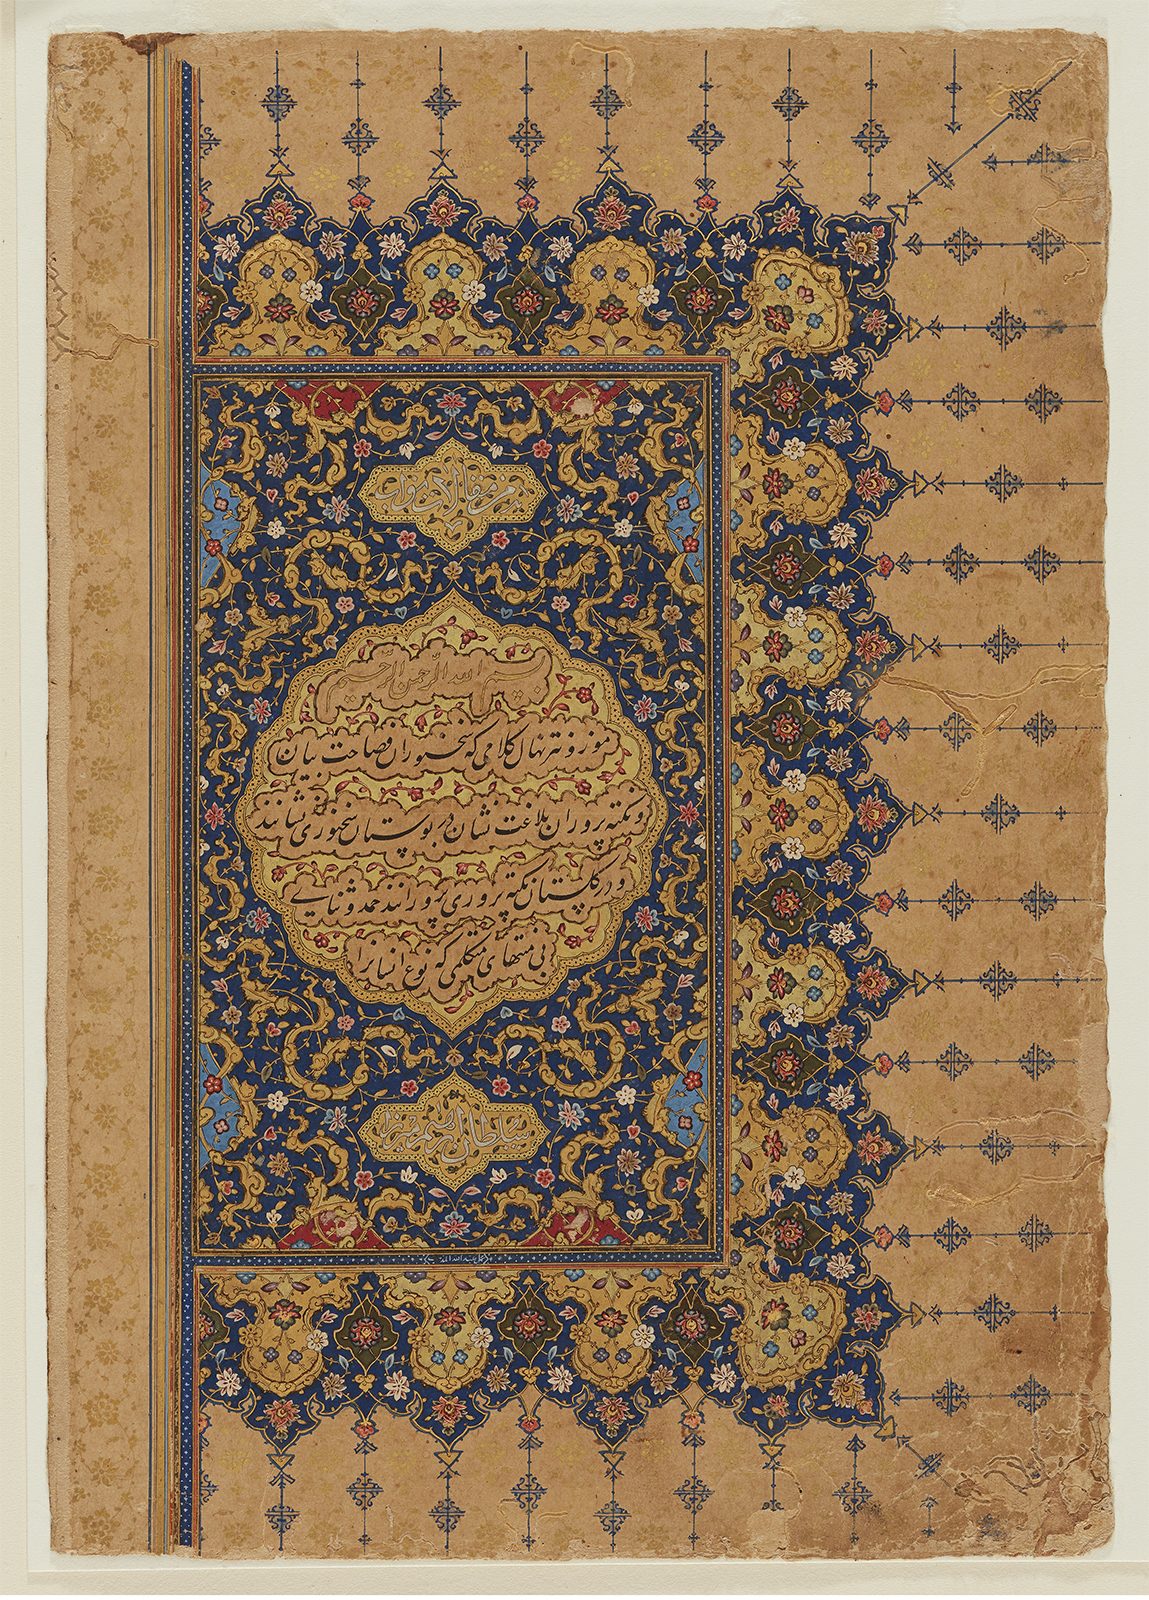 من مقالات نواب
بسم الله الرحمن الرحیم
موزونتر نهال کلامی که سخنوران فصاحت بیان
و نکته پروران بلاغت نشان در بوستان سخنوری نشانند
و در گلستان نکته پروری پرورانند حمد و ثنایی
بی منتهای متکلمی که نوع انسانرا
سلطان ابراهیم میرزا
عبد الله